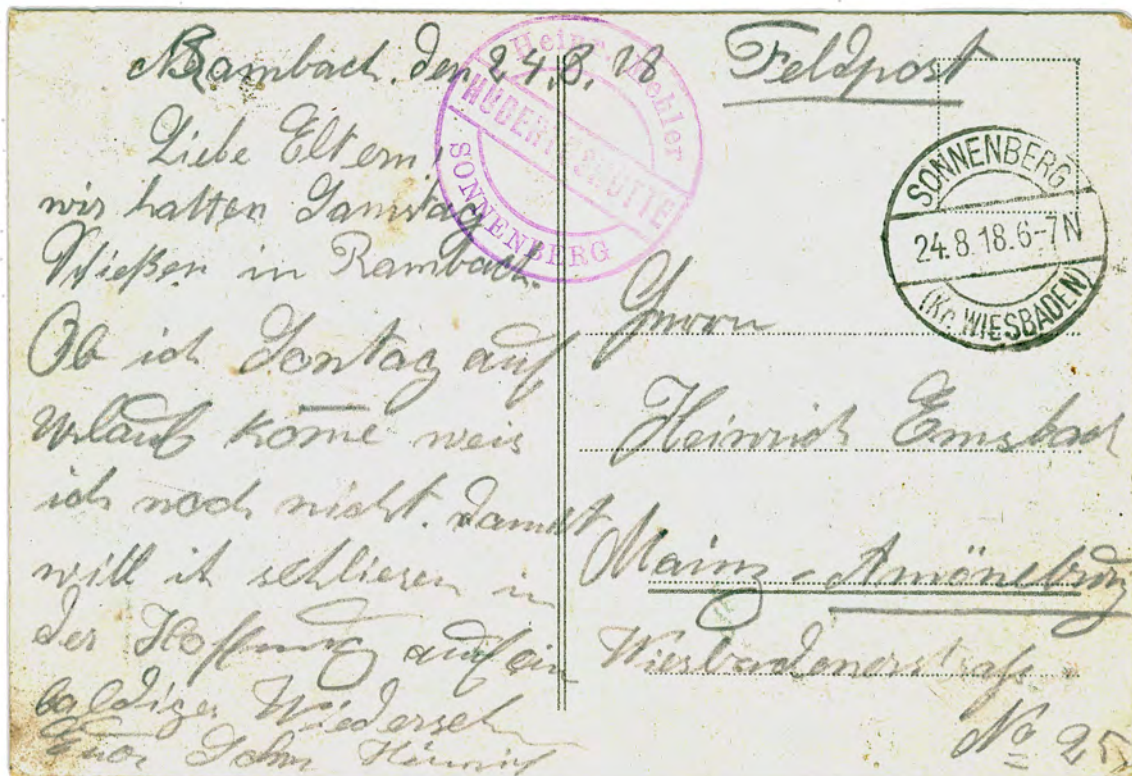 Rambach. den 24.8.18
Liebe Eltern,
wir hatten Samstag
Schießen in Rambach.
Ob ich Sontag auf
Urlaub kome weis
ich noch nicht. Damit
will ich schliesen in
der Hoffnung auf ein
baldiges Wiedersehn
Euer Sohn Heinrich
Heinr. Köhler
HUBERTUSHÜTTE
SONNENBERG
Feldpost
SONNENBERG
24.8.18.6-7N
(Kr. WIESBADEN)
Herrn
Heinrich Emsbach
Mainz - Amöneburg
Wiesbadenerstraße
No 25